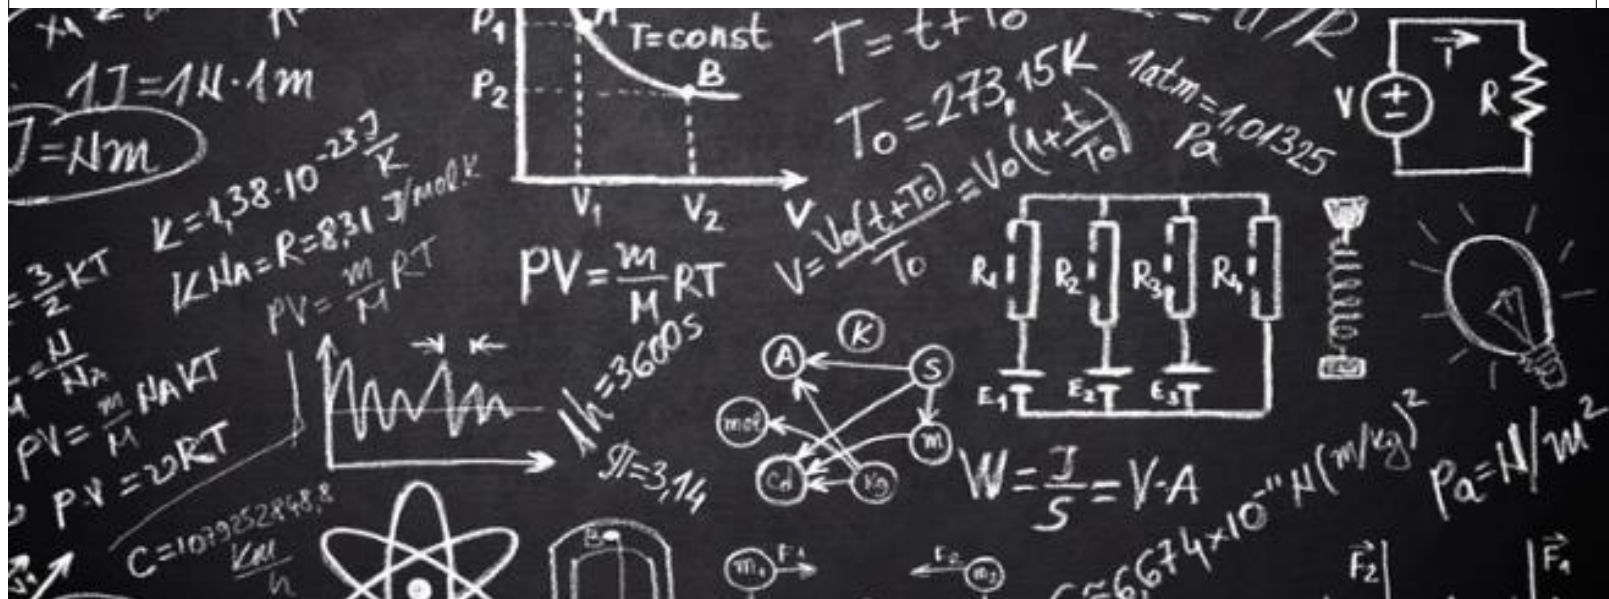 1J=1N·1m
J=Nm
K=1,38·10⁻²³ J/K
KNA=R=8,31 J/mol·K
PV=m/M RT
=3/2 KT
=N/NA
PV=m/M NAKT
PV=νRT
C=1079252848,8 Km/h
P₁
A
T=const
P₂
B
V₁
V₂
V
PV=m/M RT
1h=3600s
π=3,14
T=t+T₀
T₀=273,15K
1atm=1,01325
Pa
V=V₀(t+T₀)/T₀=V₀(1+t/T₀)
V
I
R
R₁
R₂
R₃
R₄
E₁
E₂
E₃
K
A
S
mol
m
Cd
Kg
W=J/S=V·A
≈6,674×10⁻¹¹ N(m/kg)²
Pa=N/m²
B
m₁
F₁
F₂
m₂
F₂
F₁